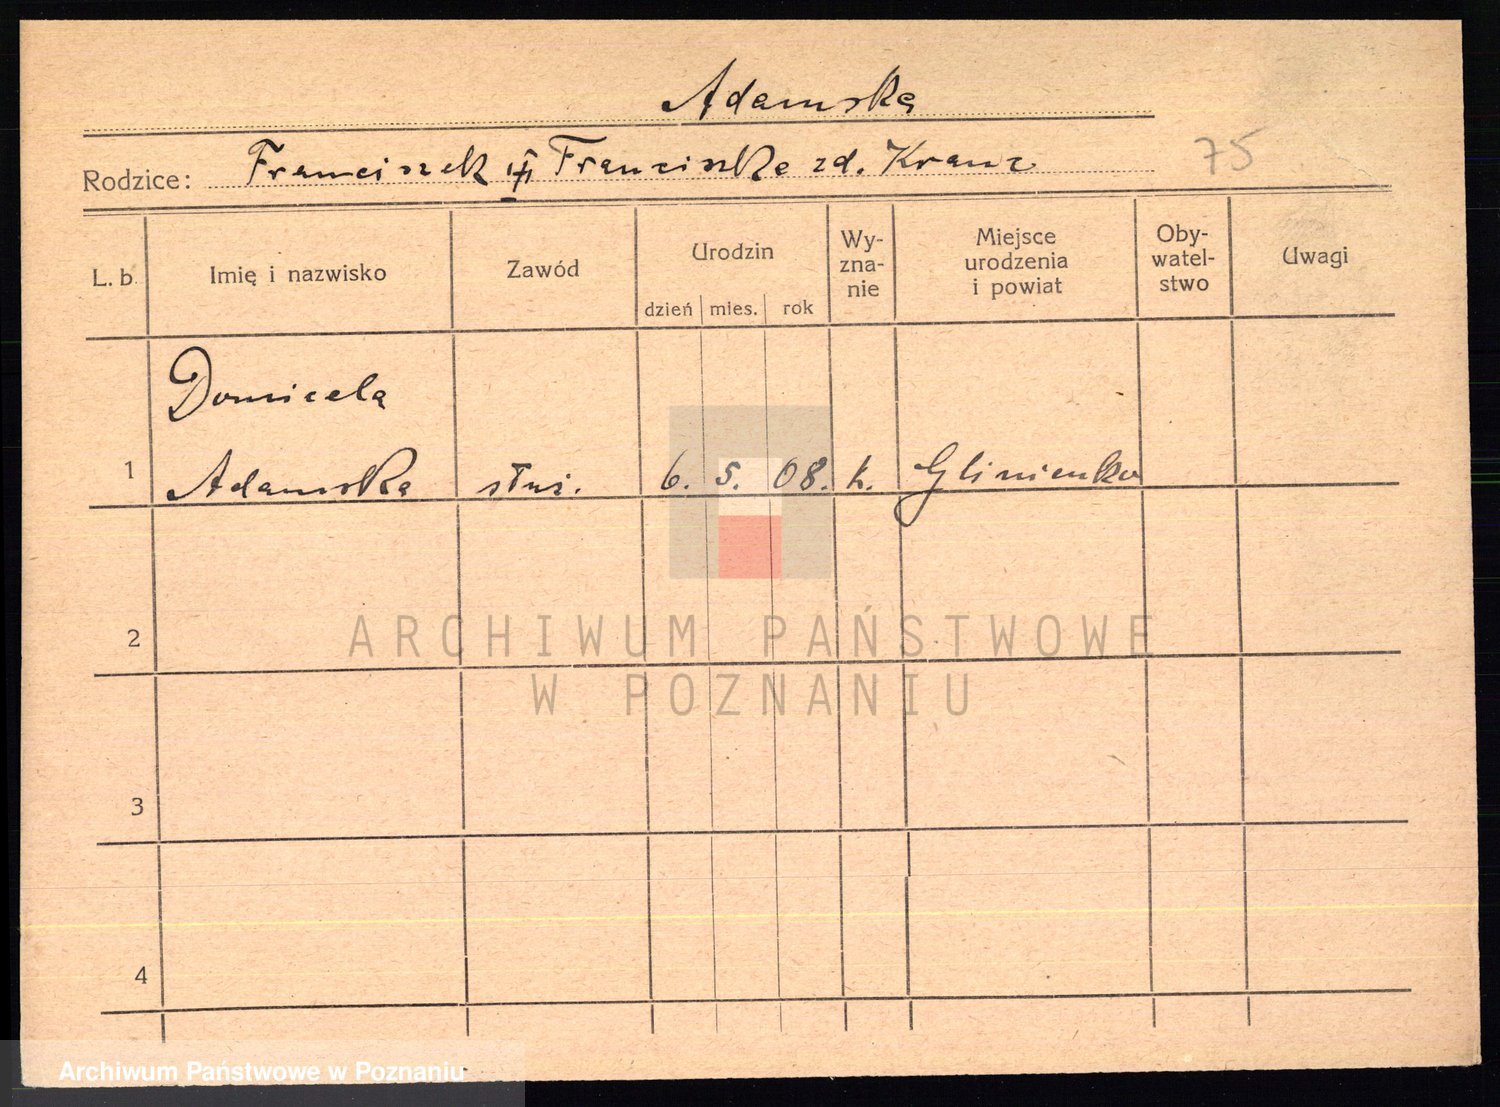 Adamska
75
Rodzice: Franciszek Franciszka zd. Kranz
L. b. Imię i nazwisko Zawód Urodzin Wy- Miejsce Oby- Uwagi
zna- urodzenia watel-
dzień mies. rok nie i powiat stwo
Domicela
1 Adamska służ. 6. 5. 08. k. Glinienko
2
3
4
ARCHIWUM PAŃSTWOWE
W POZNANIU
Archiwum Państwowe w Poznaniu